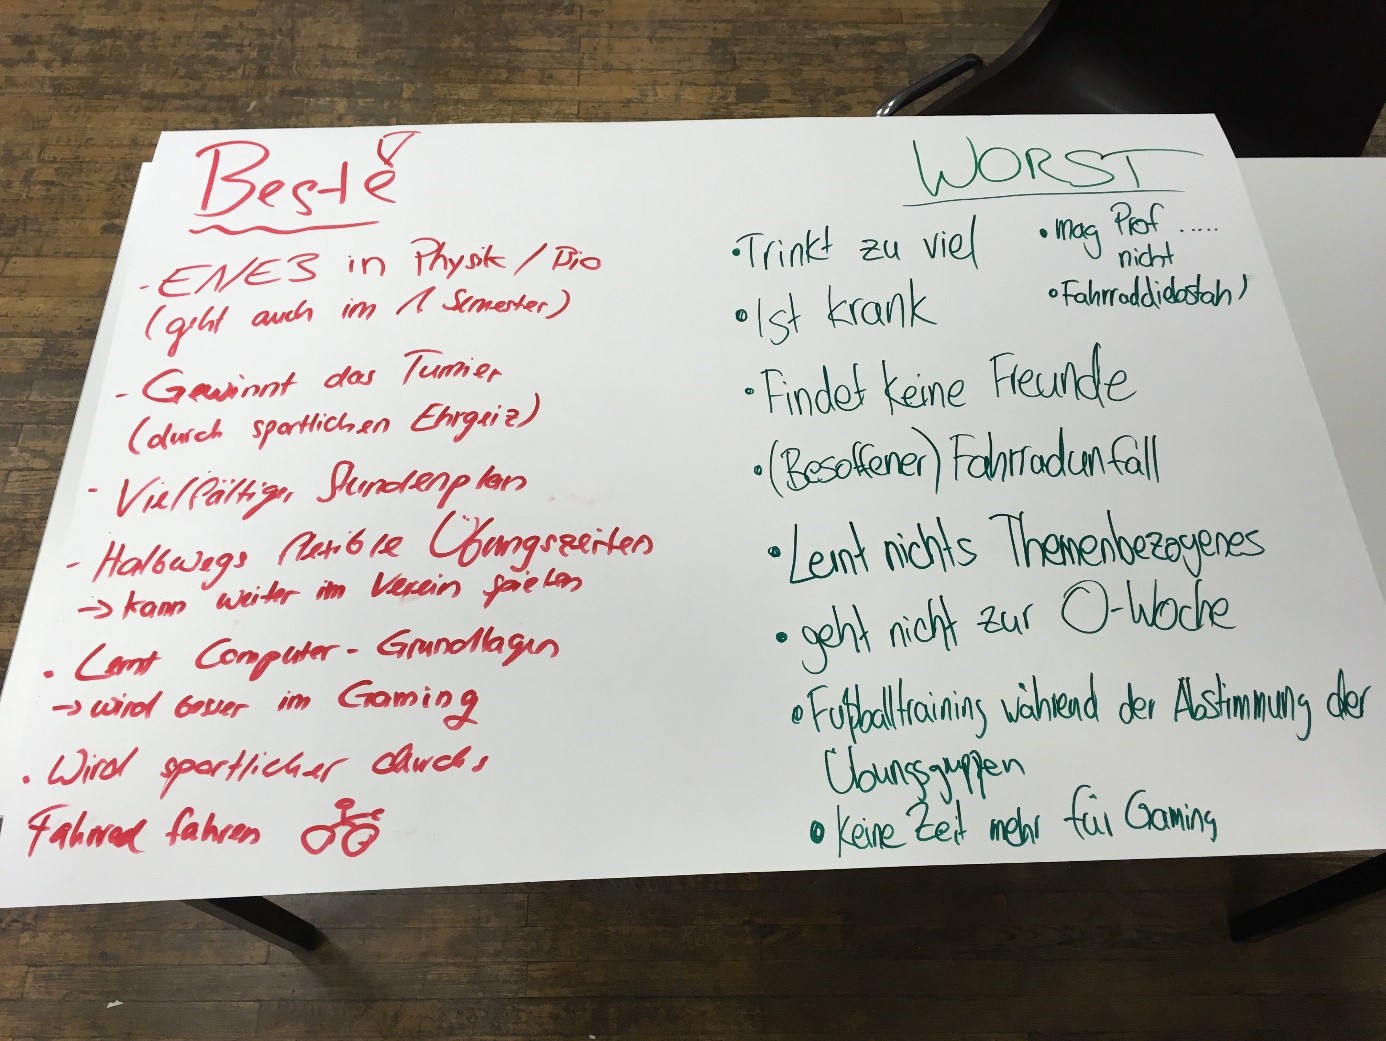 Beste
- ENEB in Physik / Bio
(geht auch im 1. Semester)
- Gewinnt das Turnier
(durch sportlichen Ehrgeiz)
- Vielfältiger Stundenplan
- Halbwegs flexible Übungszeiten
→ kann weiter im Verein spielen
· Lernt Computer-Grundlagen
→ wird besser im Gaming
· Wird sportlicher durchs
Fahrrad fahren
WORST
• Trinkt zu viel
• Ist krank
• mag Prof .....
nicht
• Fahrraddiebstahl
• Findet keine Freunde
• (Besoffener) Fahrradunfall
• Lernt nichts Themenbezogenes
• geht nicht zur O-Woche
• Fußballtraining während der Abstimmung der
Übungsgruppen
• Keine Zeit mehr für Gaming